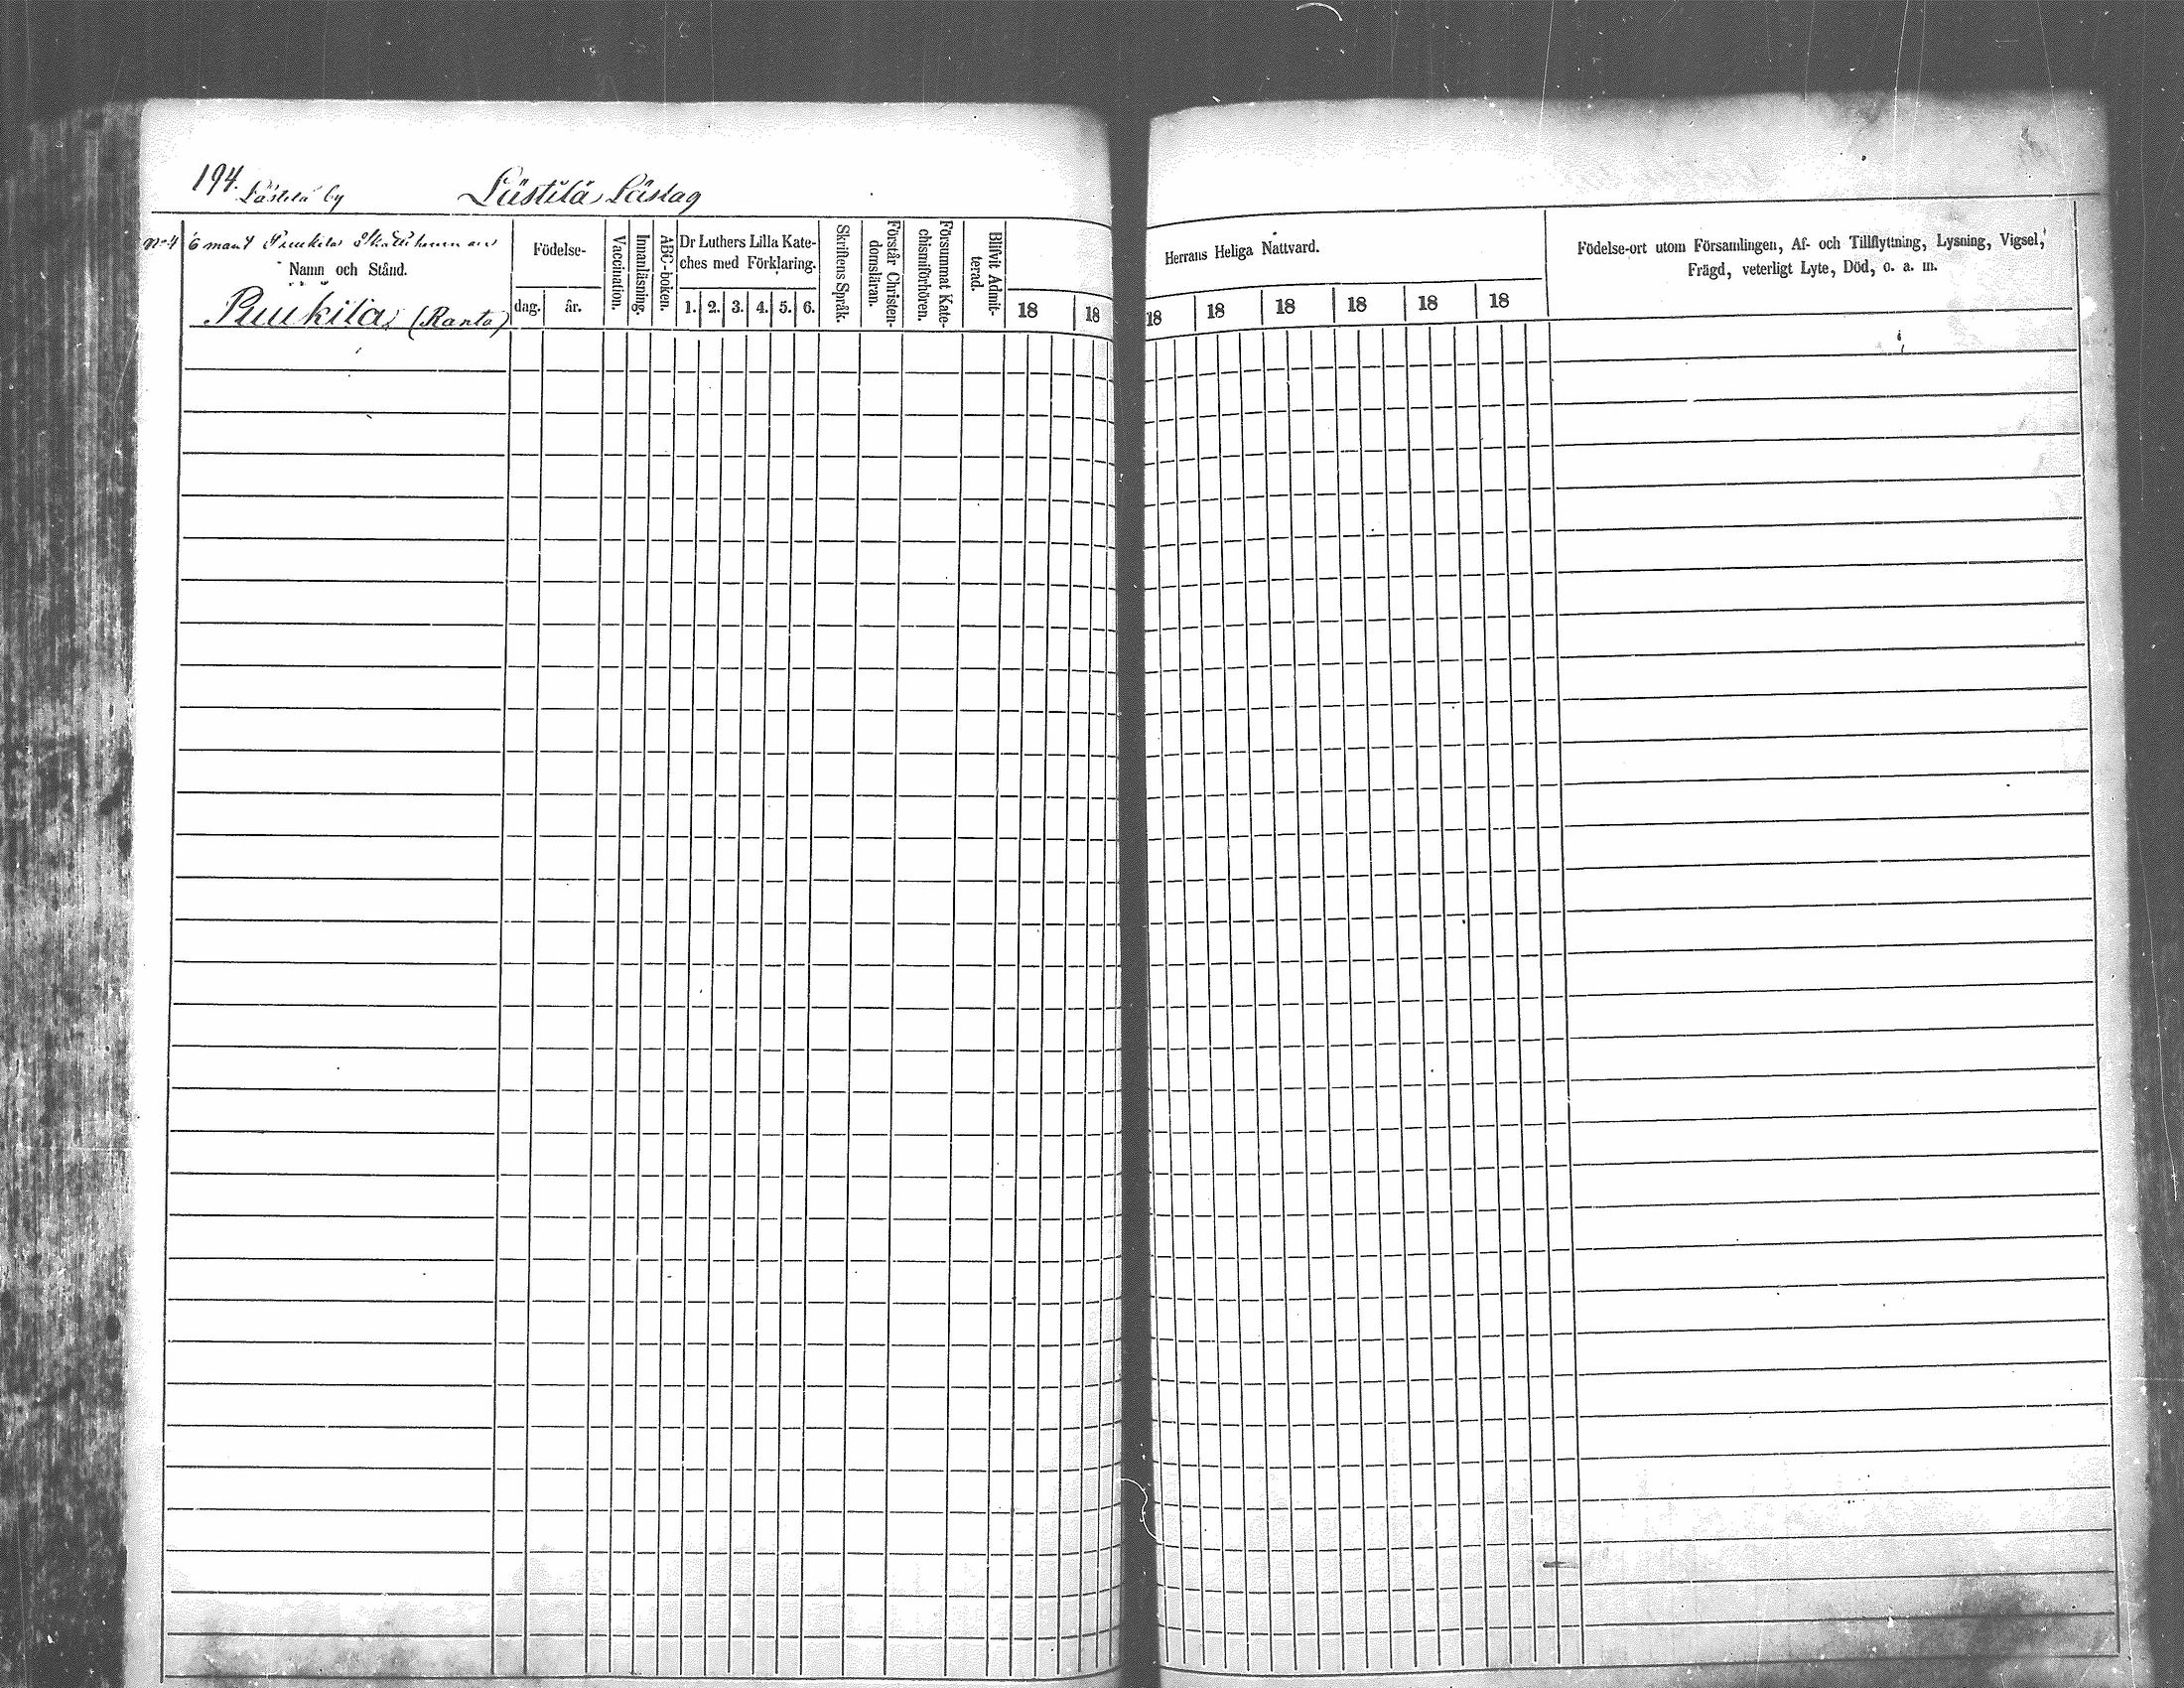 194.
Lästilä by Lästilä Läslag
No 4 6 mant Puukila Skattehemman
Namn och Stånd.
Puukila (Ranta)
Födelse-
dag. år.
Vaccination.
Innanläsning.
ABC-boken.
Dr Luthers Lilla Kate-
ches med Förklaring.
1. 2. 3. 4. 5. 6.
Skriftens Språk.
Förstår Christen-
domsläran.
Försummat Kate-
chismiförhören.
Blifvit Admit-
terad.
18 18
Herrans Heliga Nattvard.
18 18 18 18 18 18
Födelse-ort utom Församlingen, Af- och Tillflyttning, Lysning, Vigsel,
Frägd, veterligt Lyte, Död, o. a. m.